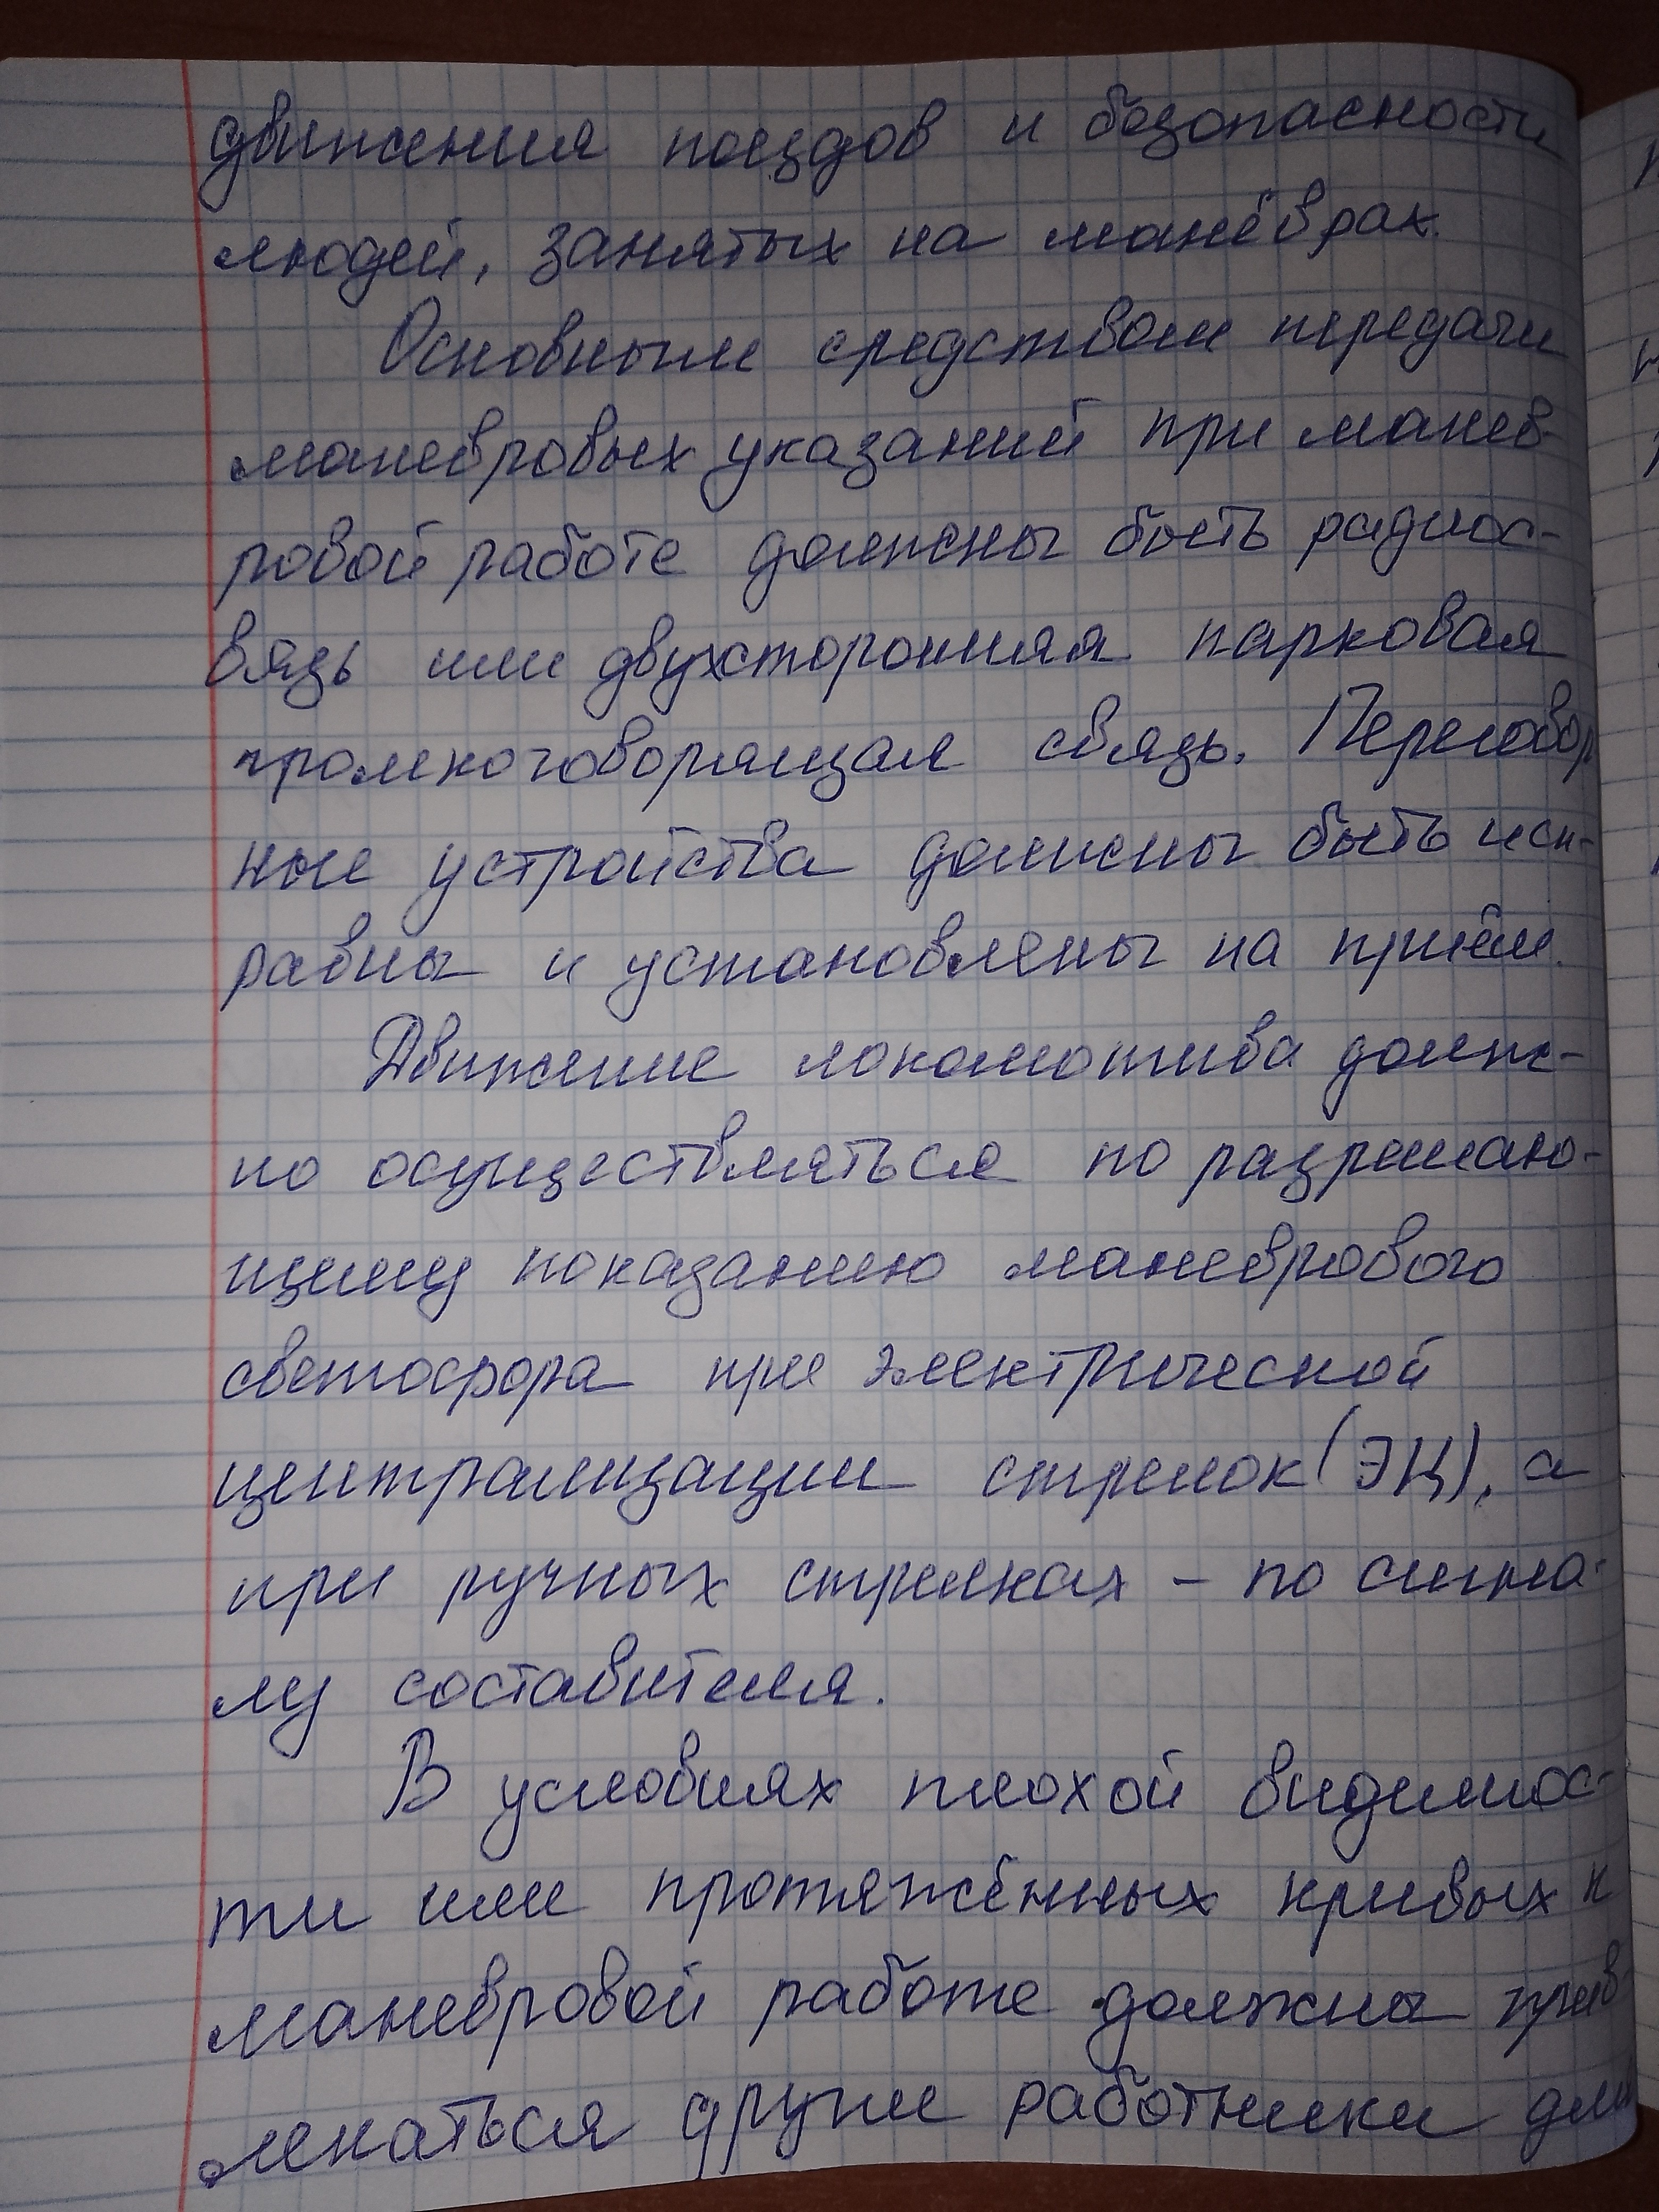 движения поездов и безопасности
людей, занятых на манёврах.
Основным средством передачи
маневровых указаний при манев-
ровой работе должны быть радиос-
вязь или двухсторонняя парковая
громкоговорящая связь. Переговор
ные устройства должны быть исп-
равны и установлены на приём.
Движение локомотива долж-
но осуществляться по разрешаю-
щему показанию маневрового
светофора при электрической
централизации стрелок (ЭЦ), а
при ручных стрелках – по сигна-
лу составителя.
В условиях плохой видимос-
ти или протяжённых кривых к
маневровой работе должны прив-
лекаться другие работники для